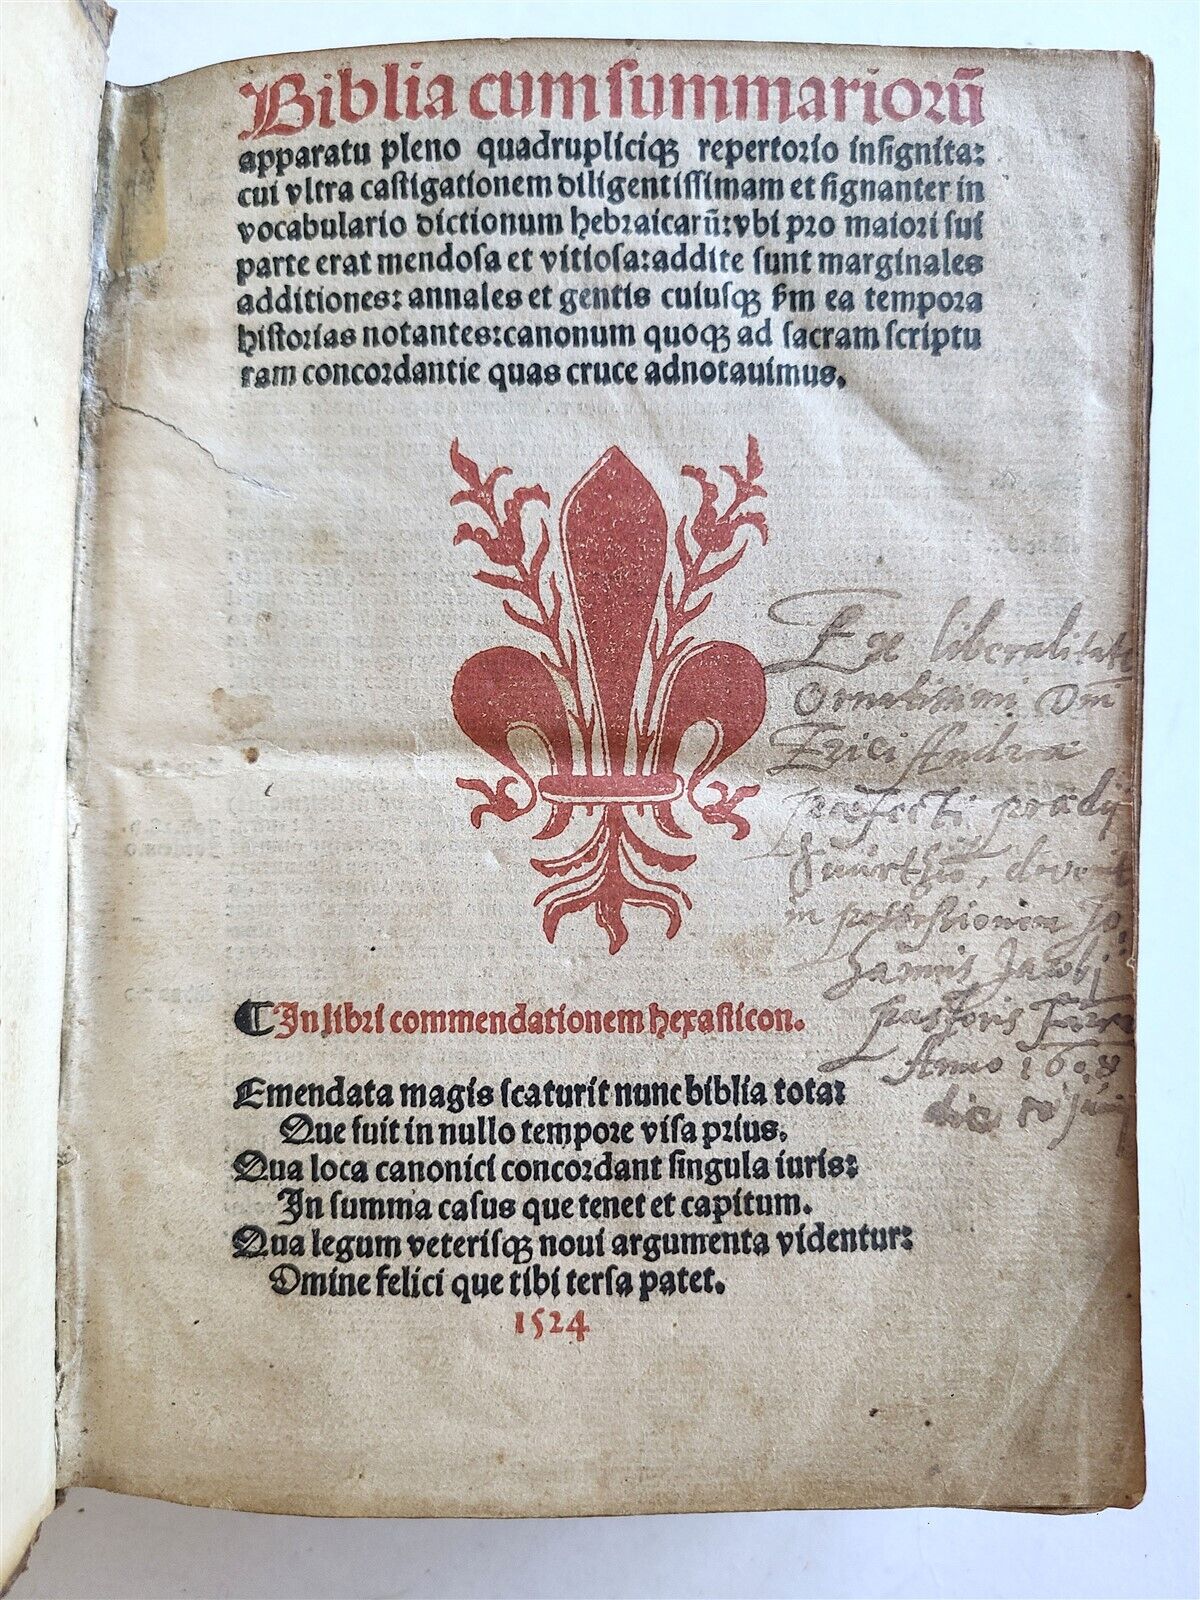 Biblia cum summariorū
apparatu pleno quadrupliciqꝫ repertorio insignita:
cui vltra castigationem diligentissimam et signanter in
vocabulario dictionum hebraicarū: vbi pro maiori sui
parte erat mendosa et vitiosa: addite sunt marginales
additiones: annales et gentis cuiusqꝫ ẜm ea tempora
historias notantes: canonum quoqꝫ ad sacram scriptu
ram concordantie quas cruce adnotauimus.
Ex liberalitate
Ornatissimi Dni
Erici Andreæ
præfecti prædij
devenit
in possessionem Jo,
hannis Jacobj
pastoris
Anno 1608
die Junij
¶ In libri commendationem hexasticon.
Emendata magis scaturit nunc biblia tota:
Que fuit in nullo tempore visa prius.
Qua loca canonici concordant singula iuris:
In summa casus que tenet et capitum.
Qua legum veterisqꝫ noui argumenta videntur:
Omine felici que tibi tersa patet.
1524